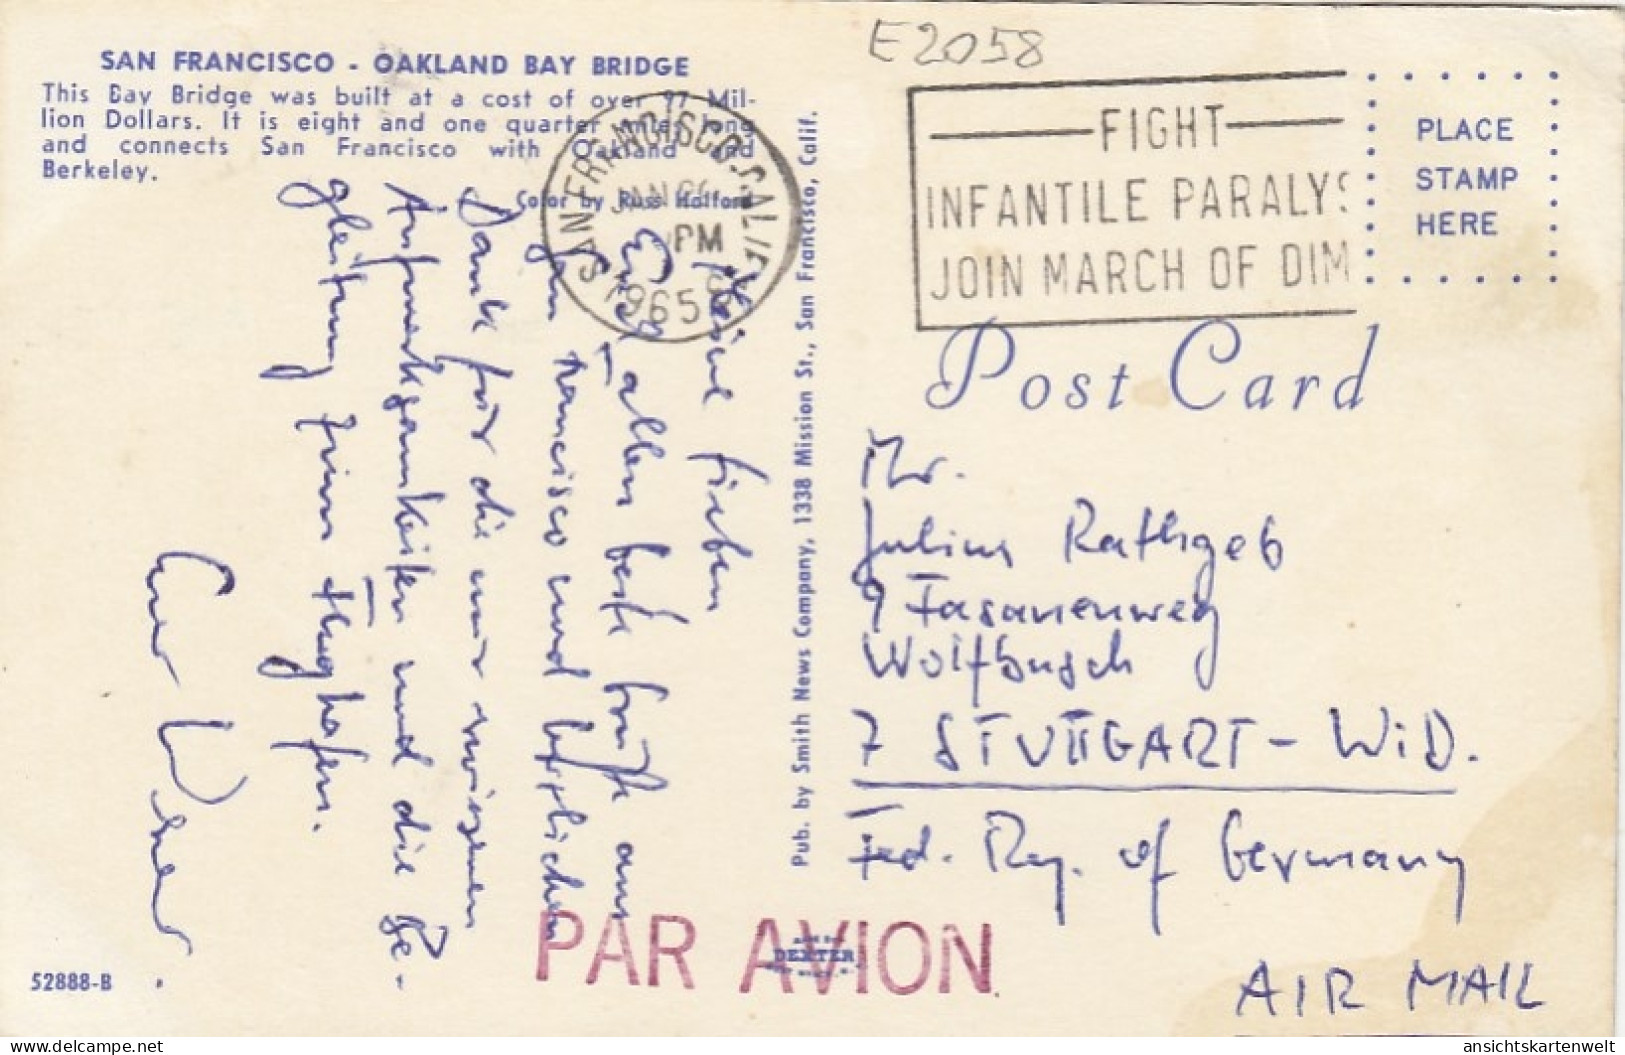 E2058
SAN FRANCISCO - OAKLAND BAY BRIDGE
This Bay Bridge was built at a cost of over 97 Mil-
lion Dollars. It is eight and one quarter miles long
and connects San Francisco with Oakland and
Berkeley.
Color by Russ Halford
SAN FRANCISCO, CALIF.
JAN
PM
1965
FIGHT
INFANTILE PARALYS
JOIN MARCH OF DIM
PLACE
STAMP
HERE
Post Card
Meine lieben
Euch allen beste Grüße aus
San Francisco und herzlichen
Dank für die mir erwiesenen
Aufmerksamkeiten und die Be-
gleitung zum Flughafen.
Euer
Pub. by Smith News Company, 1338 Mission St., San Francisco, Calif.
Mr.
Julius Rathgeb
9 Fasanenweg
Wolfbusch
7 STUTTGART - WiD.
Fed. Rep. of Germany
AIR MAIL
PAR AVION
DEXTER
52888-B
delcampe.net
ansichtskartenwelt